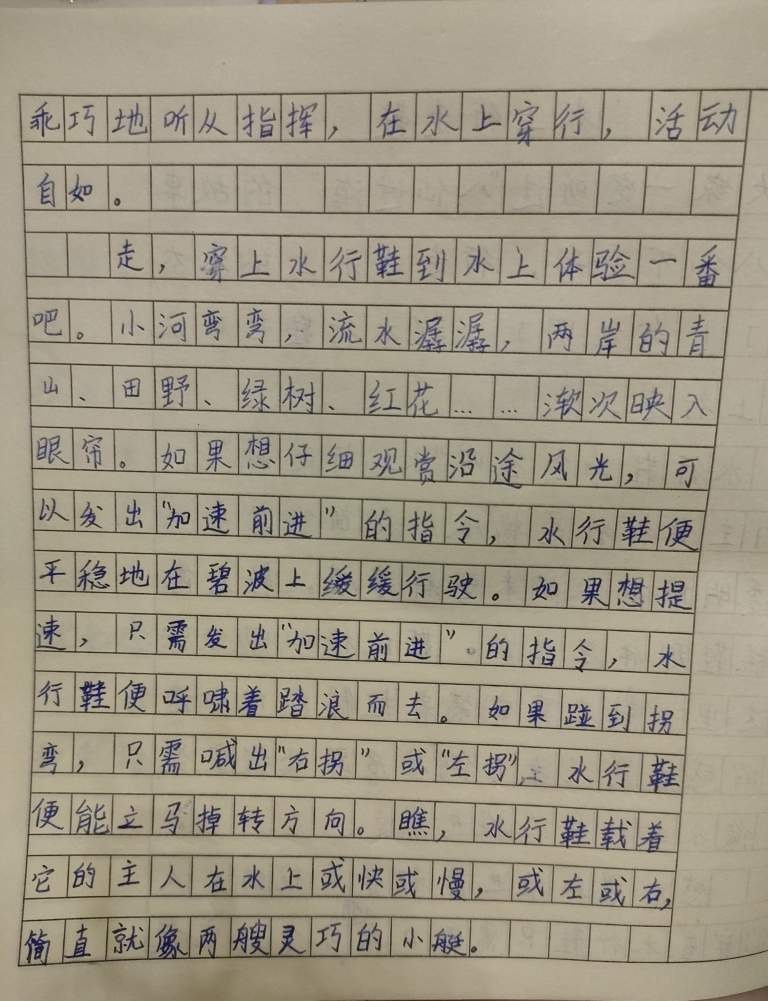 乖巧地听从指挥，在水上穿行，活动
自如。
走，穿上水行鞋到水上体验一番
吧。小河弯弯，流水潺潺，两岸的青
山、田野、绿树、红花……渐次映入
眼帘。如果想仔细观赏沿途风光，可
以发出“加速前进”的指令，水行鞋便
平稳地在碧波上缓缓行驶。如果想提
速，只需发出“加速前进”。的指令，水
行鞋便呼啸着踏浪而去。如果碰到拐
弯，只需喊出“右拐”或“左拐”，水行鞋
便能立马掉转方向。瞧，水行鞋载着
它的主人在水上或快或慢，或左或右，
简直就像两艘灵巧的小艇。